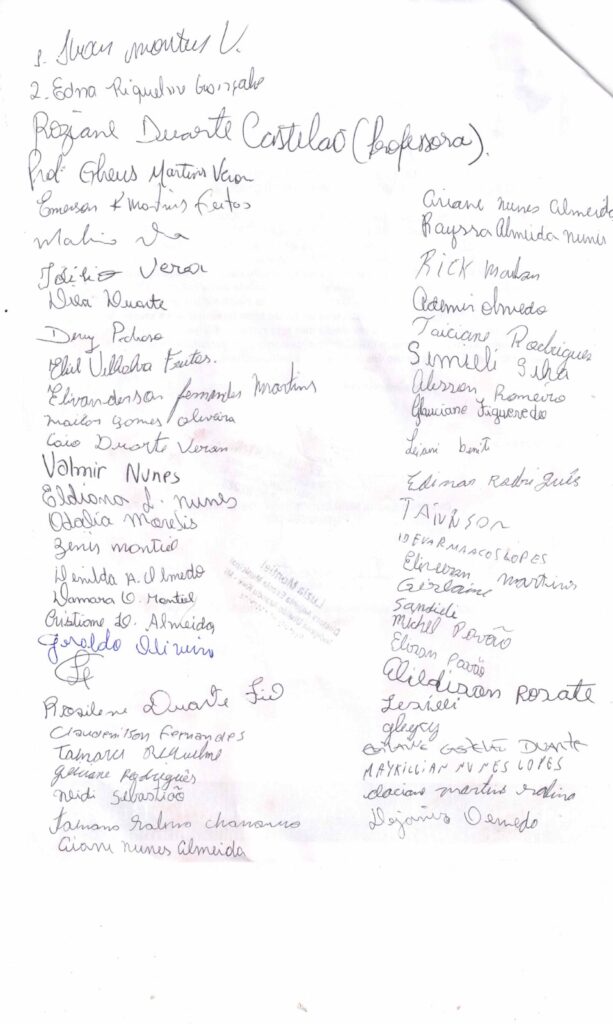 1. Juan Montes V.
2. Edna Riquelme Gonçalves
Roziane Duarte Castelão (Professora).
Prof. Gheus Martins Vera
Emerson K Martins Freitas
Vera
Dila Duarte
Dery Pedroso
Eliel Villalva Freitas.
Elivanderson fernandes Martins
mailos Gomes oliveira
Caio Duarte Veron
Valmir Nunes
Eldiana L. nunes
Odalia Morelis
Zenir montiel
Denilda A. Olmedo
Damara O. Montiel
Cristiane D. Almeida
Geraldo Oliveira
Rosilene Duarte
Claudemilson Fernandes
Tamares Riquelme
geliane Rodrigues
Neidi Sebastião
Fabiano
Ariane nunes Almeida
Ariane nunes Almeida
Rayssa Almeida nunes
RICK
Ademir Olmedo
Taiciane Rodrigues
Simieli Silva
Alisson Romeiro
Glauciane Figueredo
benit
Edimar Rodrigues
TAINNSON
IDEVAR MARCOS LOPES
Elievan martins
Geslaine
Sandieli
Michel Pavão
Elivan Pavão
Alildison Rosate
Lesieli
gleycy
Duarte
MAYKILLIAN NUNES LOPES
daciane martins
Dejanira Olmedo
Luzia Montiel